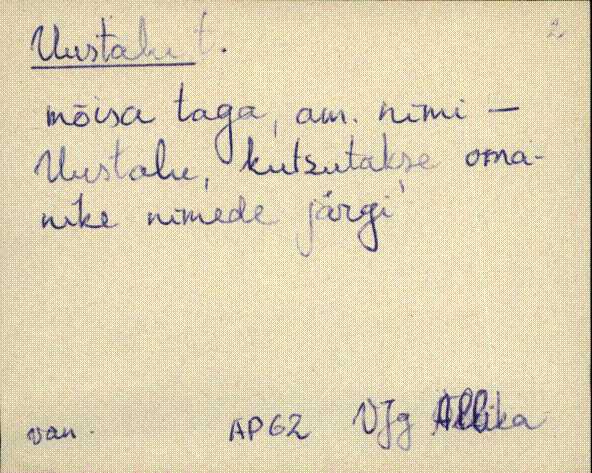 Uustalu t.
2
mõisa taga, am. nimi –
Uustalu, kutsutakse oma-
nike nimede järgi
van. AP62 VJg Allika